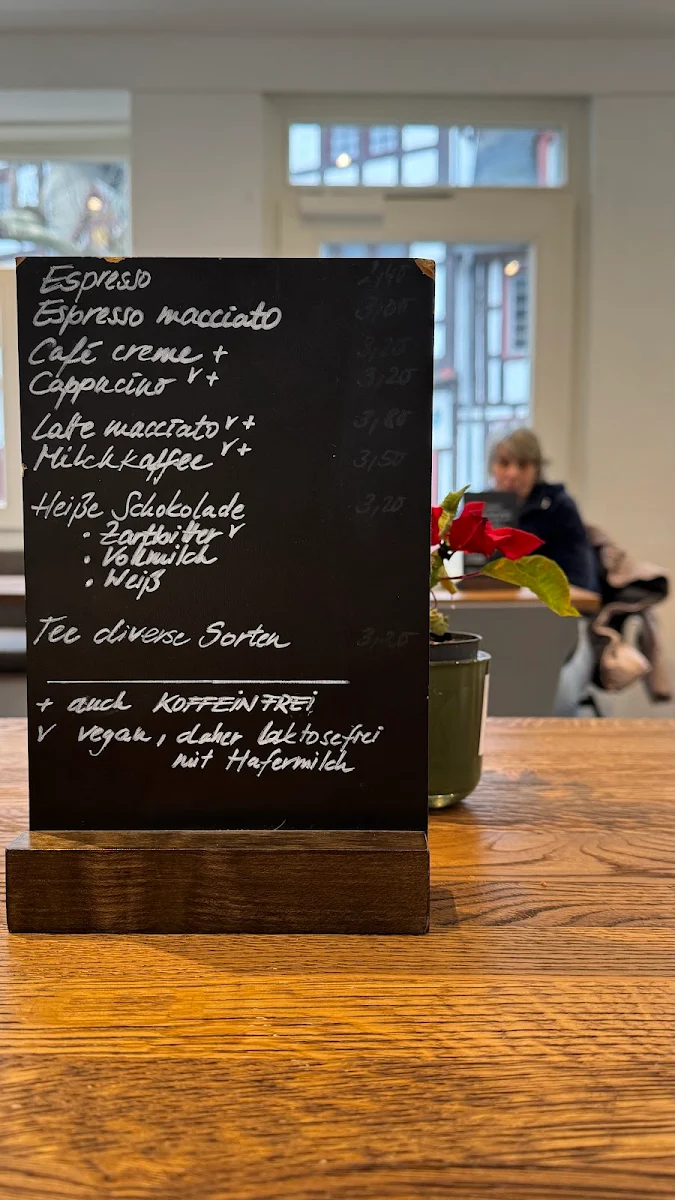 Espresso 2,40
Espresso macciato 3,00
Café creme + 3,20
Cappucino v + 3,20
Latte macciato v + 3,80
Milchkaffee v + 3,50
Heiße Schokolade 3,20
· Zartbitter v
· Vollmilch
· Weiß
Tee diverse Sorten 3,20
+ auch KOFFEINFREI
v vegan, daher laktosefrei
mit Hafermilch